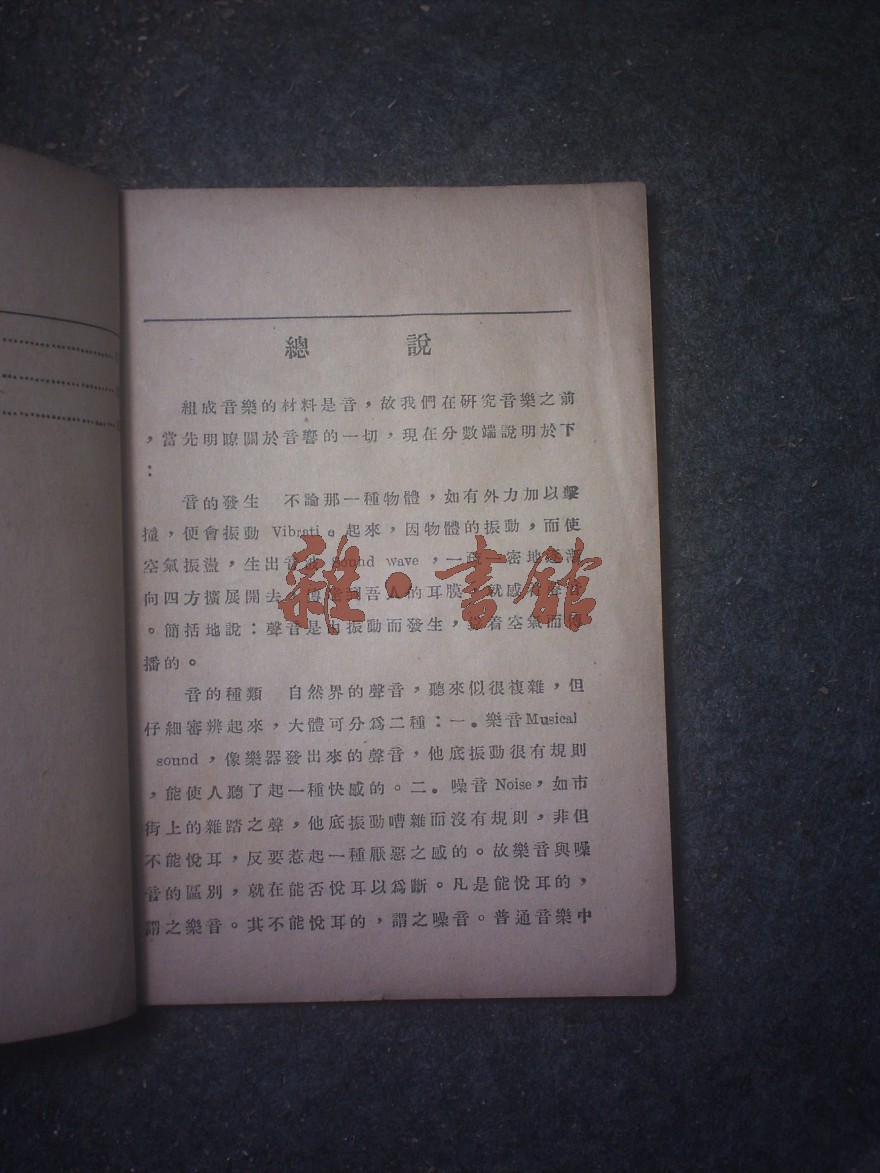 總說
組成音樂的材料是音，故我們在研究音樂之前
，當先明瞭關於音響的一切，現在分數端說明於下
：
音的發生 不論那一種物體，如有外力加以擊
撞，便會振動 Vibrati。起來，因物體的振動，而使
空氣振盪，生出音波 Sound wave，一疏一密地
向四方擴展開去，吾人的耳膜，就感
。簡括地說：聲音是由振動而發生，着空氣而
播的。
音的種類 自然界的聲音，聽來似很複雜，但
仔細審辨起來，大體可分為二種：一。樂音Musical
sound，像樂器發出來的聲音，他底振動很有規則
，能使人聽了起一種快感的。二。噪音 Noise，如市
街上的雜踏之聲，他底振動嘈雜而沒有規則，非但
不能悅耳，反要惹起一種厭惡之感的。故樂音與噪
音的區別，就在能否悅耳以為斷。凡是能悅耳的，
謂之樂音。其不能悅耳的，謂之噪音。普通音樂中
雜·書館